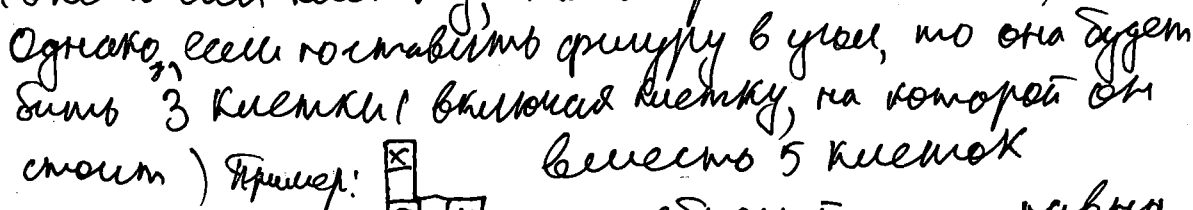 Однако, если поставить фигуру в угол, то она будет
бить 3 клетки (включая клетку, на которой он
стоит) Пример: x вместо 5 клеток